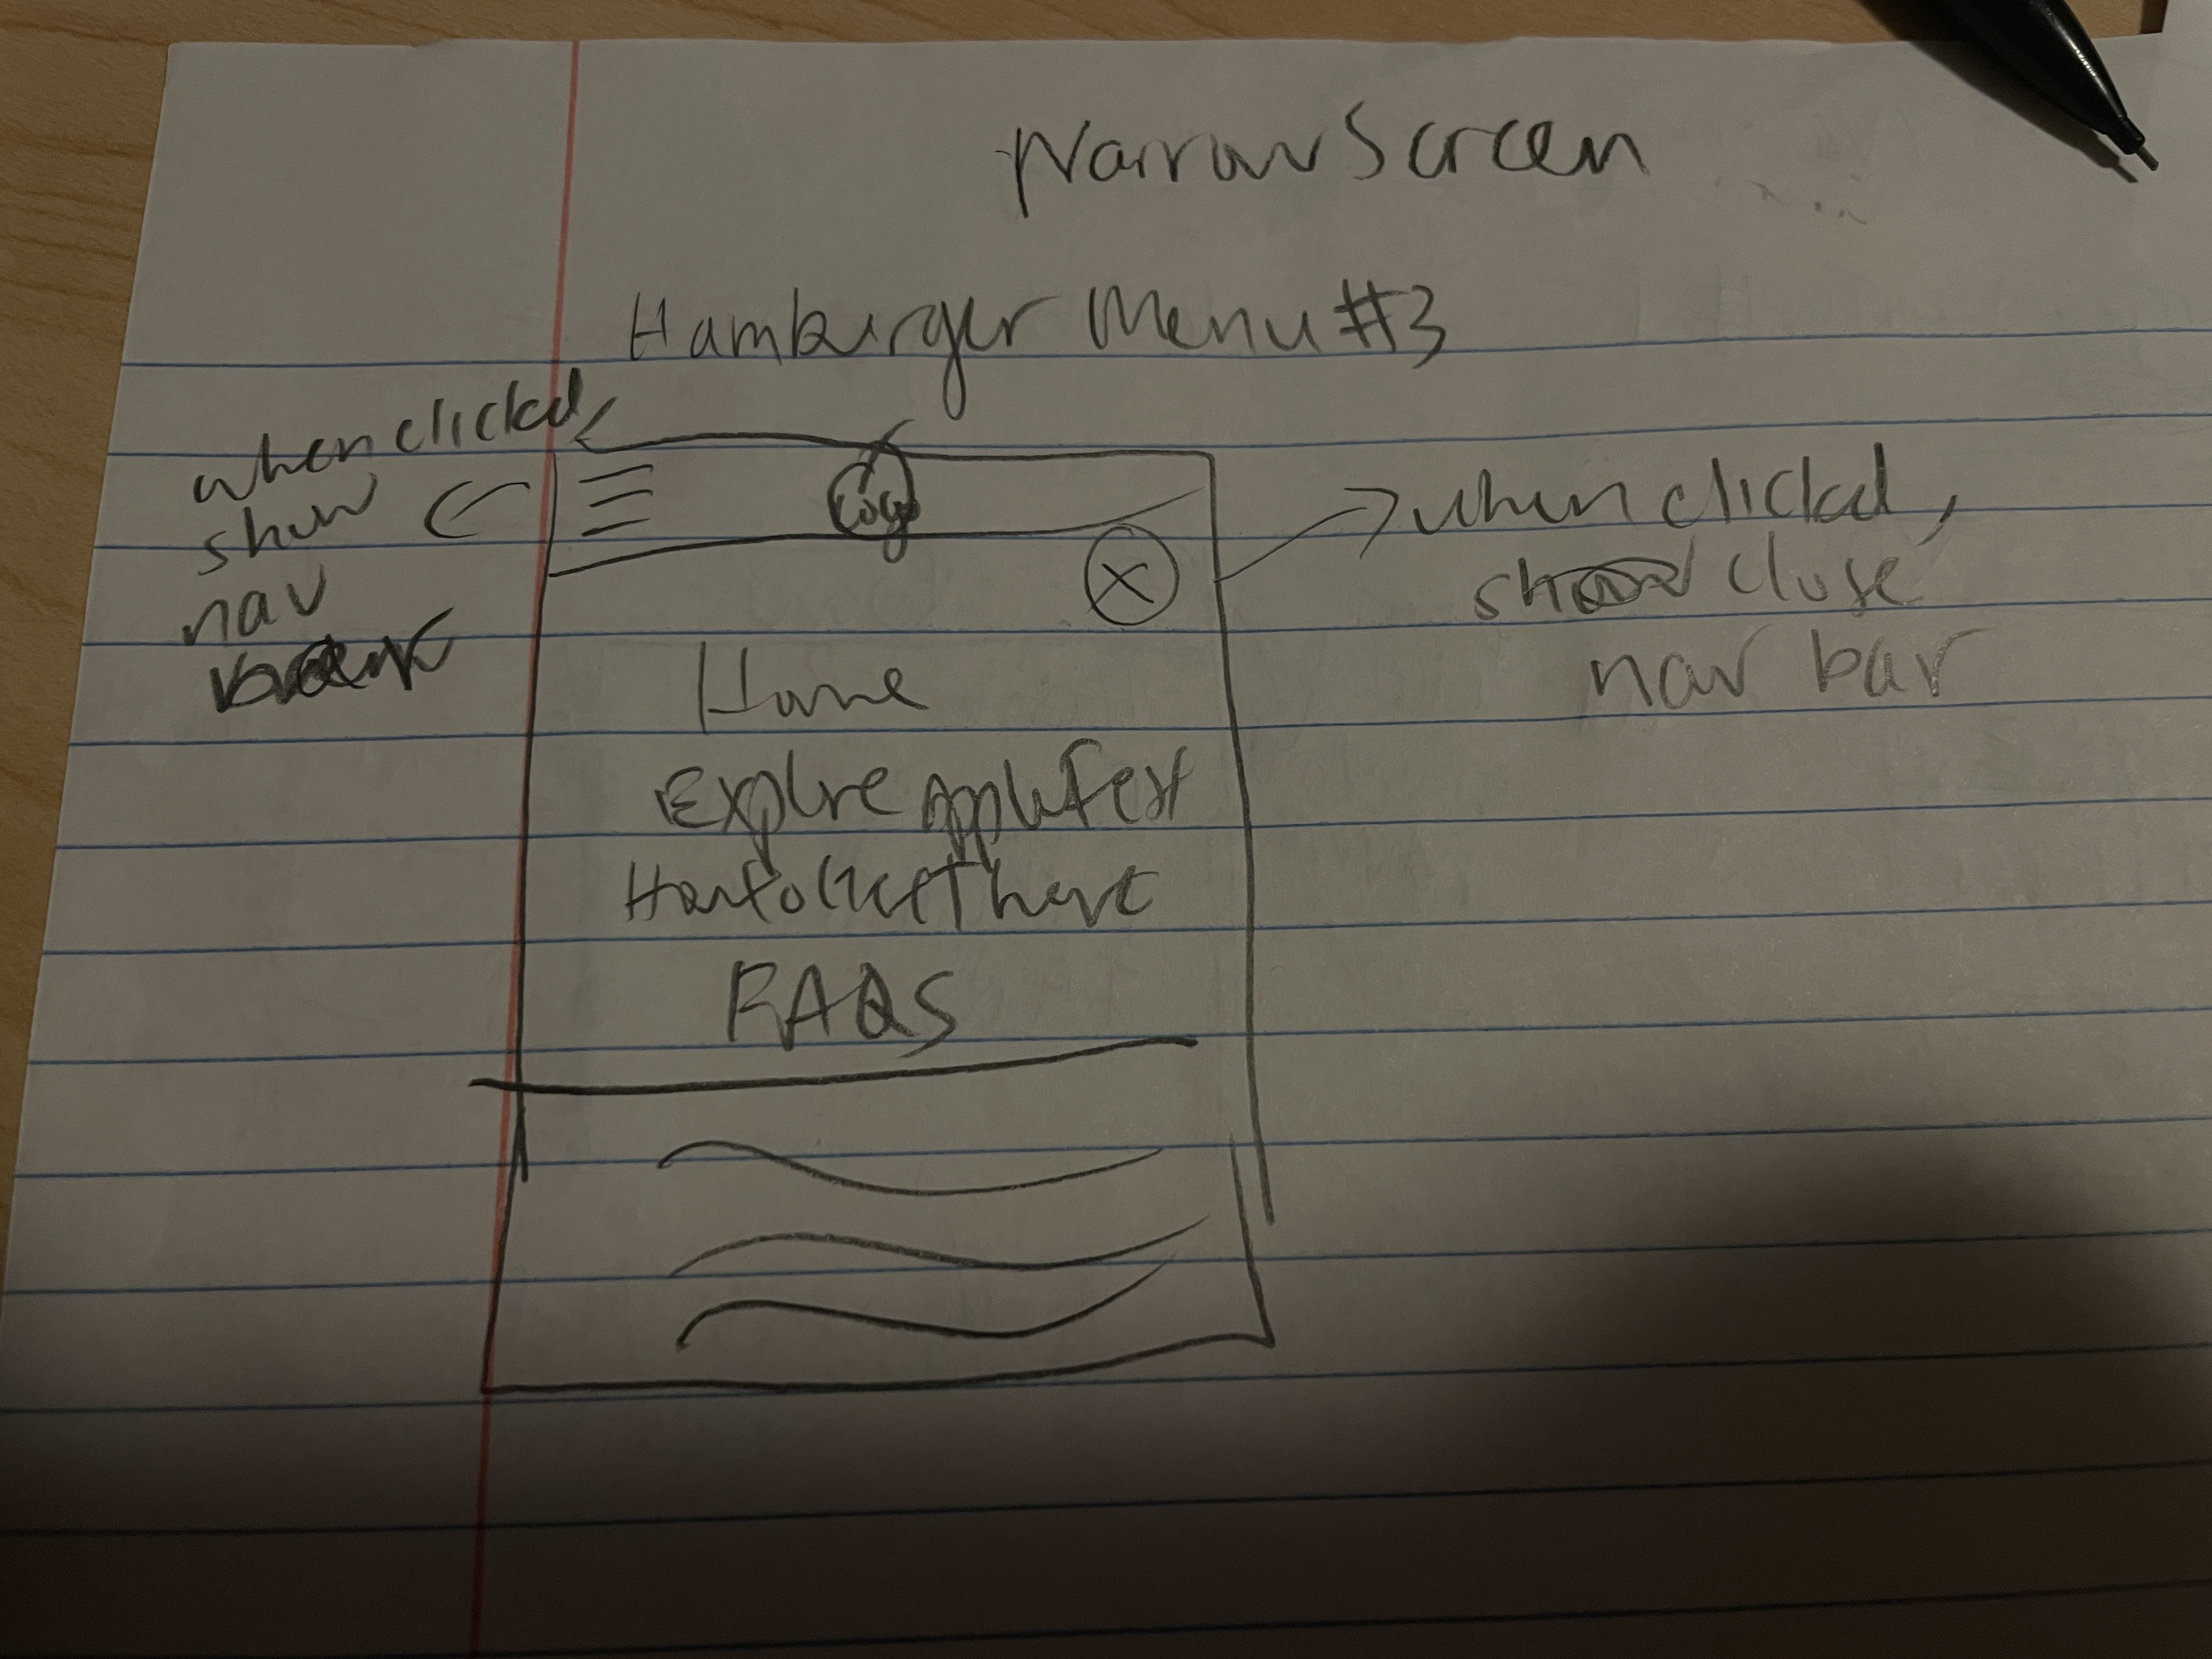 Narrow Screen
Hamburger Menu #3
when clicked,
show
nav
Logo
X
when clicked,
show close
nav bar
Home
Explore Apple Fest
How to Get There
FAQS